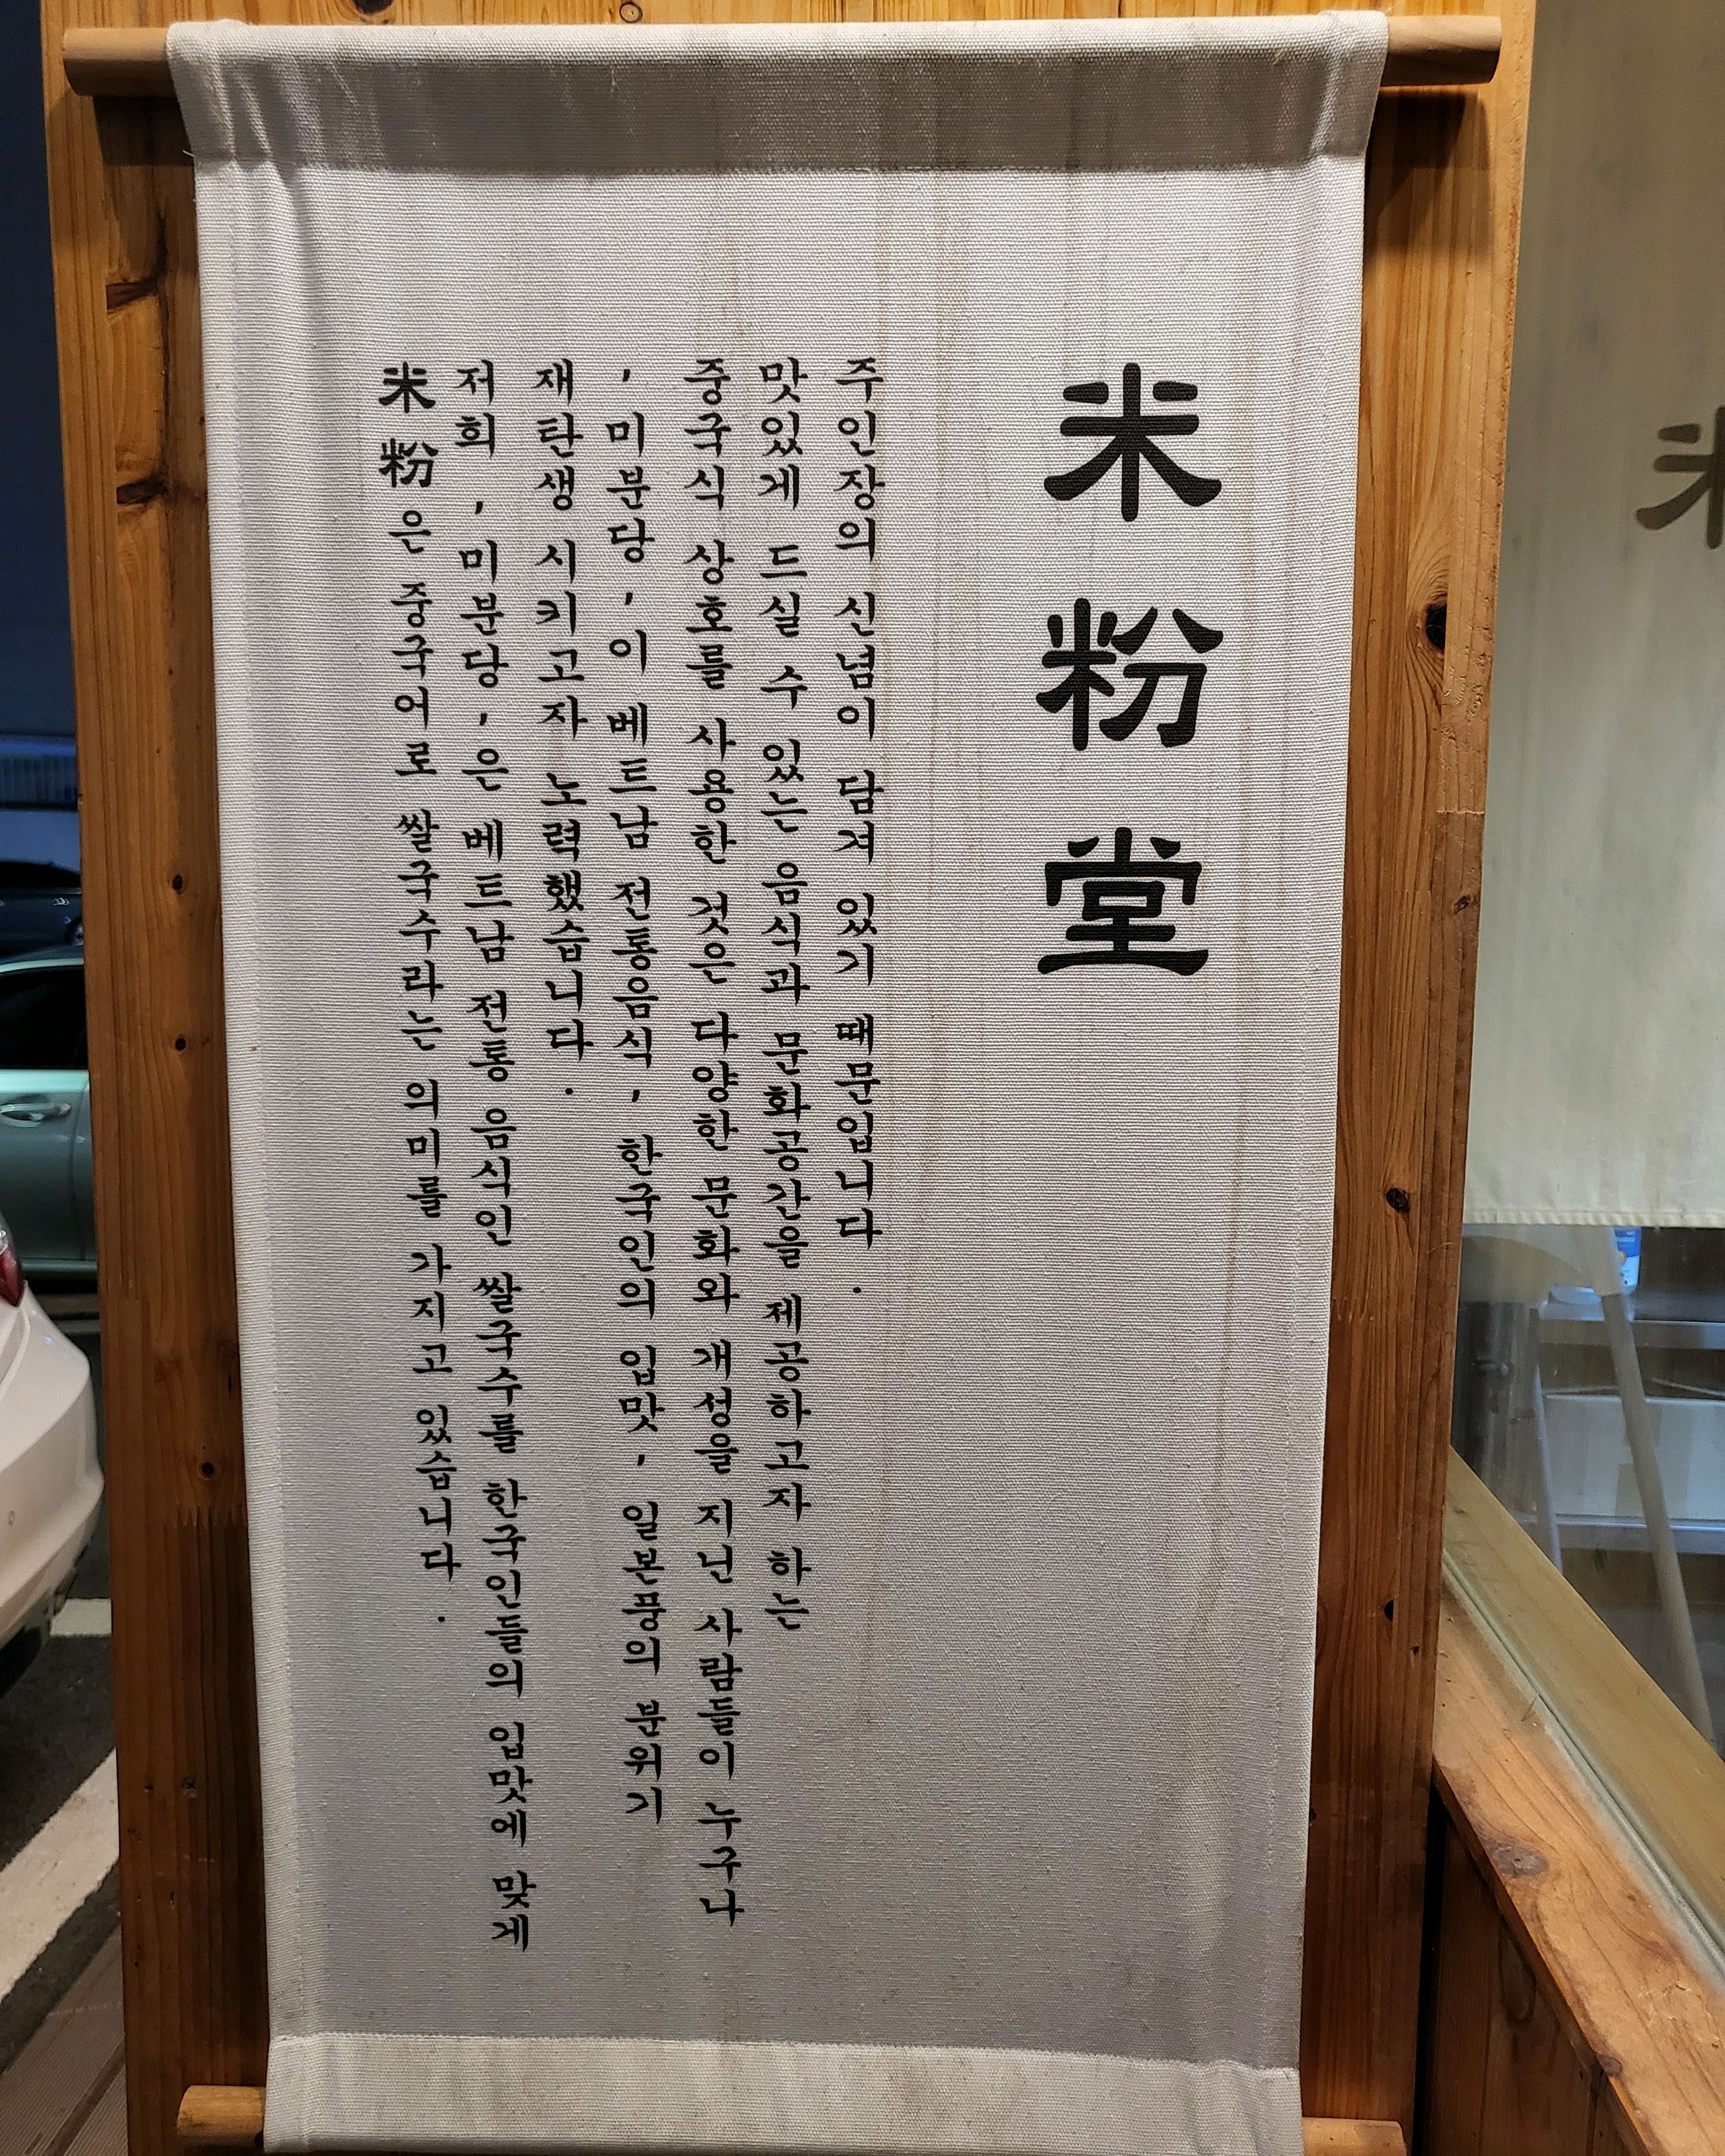 米粉堂
米粉은 중국어로 쌀국수라는 의미를 가지고 있습니다.
저희 '미분당'은 베트남 전통 음식인 쌀국수를 한국인들의 입맛에 맞게
재탄생 시키고자 노력했습니다.
'미분당'이 베트남 전통음식, 한국인의 입맛, 일본풍의 분위기
중국식 상호를 사용한 것은 다양한 문화와 개성을 지닌 사람들이 누구나
맛있게 드실 수 있는 음식과 문화공간을 제공하고자 하는
주인장의 신념이 담겨 있기 때문입니다.